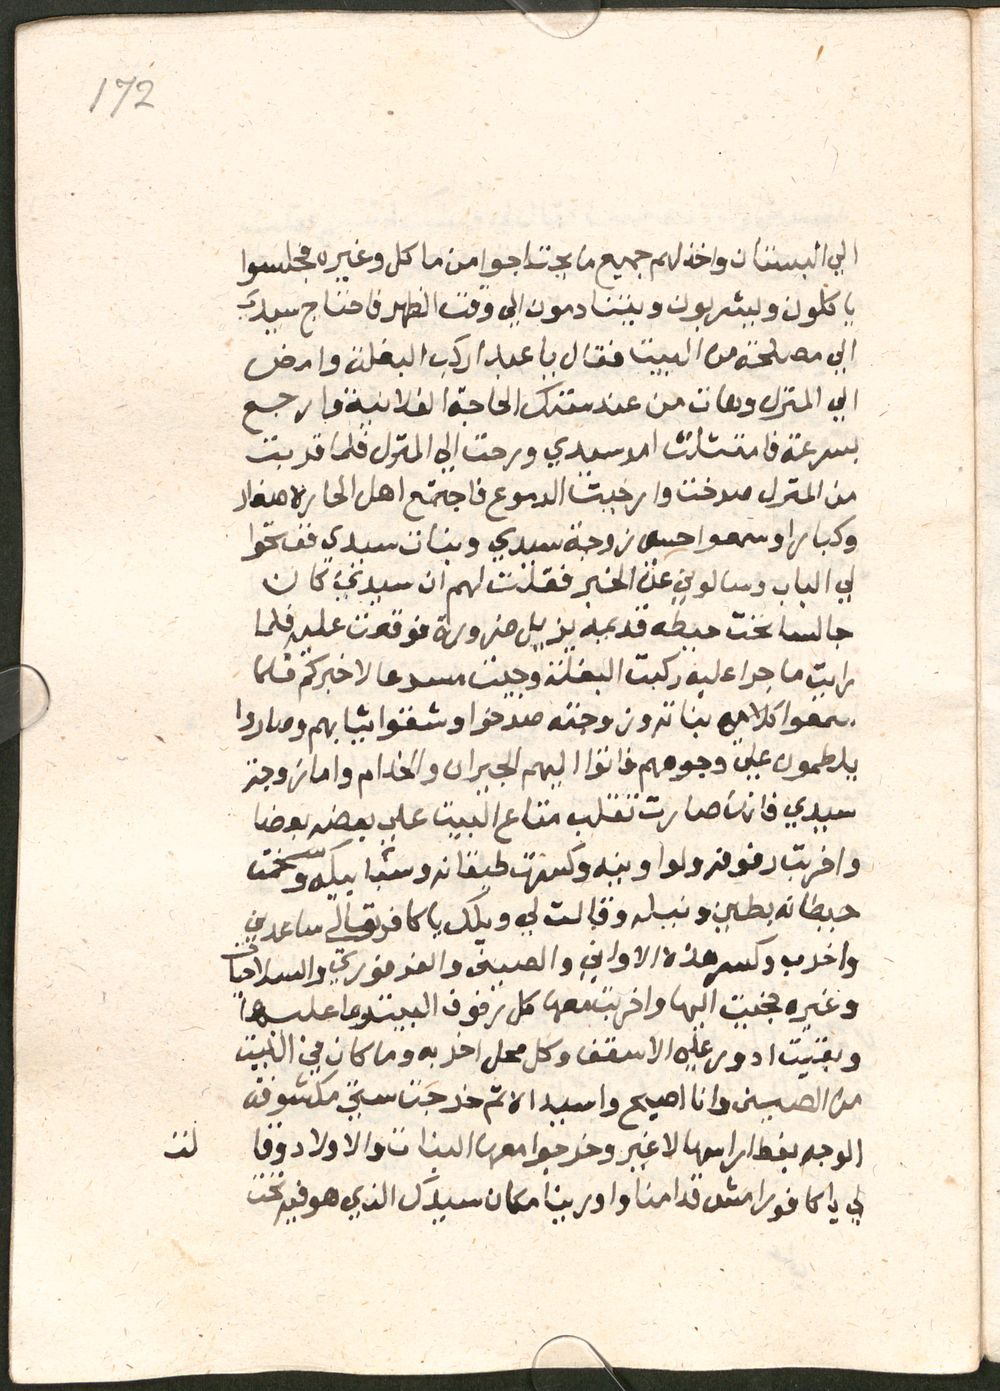 172
الي البستان واخذ لهم جميع ما يحتاجوا من ماكل وغيره فجلسوا
ياكلون ويشربون ويتنادمون الي وقت الظهر فاحتاج سيدي
الي مصلحة من البيت فقال يا عبد اركب البغلة وامض
الي المنزل وهات من عند ستك الحاجة الفلانية وارجع
بسرعة فامتثلت امر سيدي ورحت الي المنزل فلما قربت
من المنزل صرخت وارخيت الدموع فاجتمع اهل الحارة صغار
وكبارا وسمعوا حسي زوجة سيدي وبنات سيدي ففتحوا
لي الباب وسالوني عن الخبر فقلت لهم ان سيدي كان
جالسا تحت حيطه قديمه يزيل ضرورة فوقعت عليه فلما
رايت ما جرا عليه ركبت البغلة وجيت مسرعا لاخبركم فلما
سمعوا كلامي بناته وزوجته صرخوا وشقوا ثيابهم وصاروا
يلطمون علي وجوههم فاتوا اليهم الجيران والخدام واما زوجة
سيدي فانها صارت تقلب متاع البيت علي بعضه بعضا
واخربت رفوفه ولواوينه وكسرت طيقانه وشبابيكه وسخمت
حيطانه بطين ونيله وقالت لي ويلك يا كافور تعالي ساعدني
واخرب وكسر هذه الاواني والصيني والغرفوري والسلاحيات
وغيره فجيت اليها واخربت معها كل رفوف البيت وما عليها
وبقيت ادور علي الاسقف وكل محل اخربه وما كان في البيت
من الصيني وانا اصيح واسيداه ثم خرجت ستي مكشوفة
الوجه بغطا راسها لا غير وخرجوا معها البنات والاولاد وقا لت
لي يا كافور امش قدامنا واورينا مكان سيدك الذي هو فيه تحت